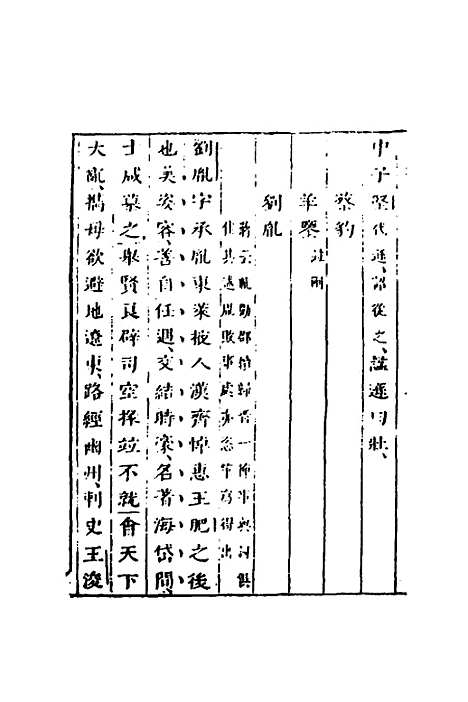 中子堅代逵、部從之、諡逵曰壯、
蔡豹
羊鑒
劉胤
劉胤字承胤東萊掖人漢齊悼惠王肥之後
也美姿容、善自任遇、交結時豪、名著海岱間、
士咸慕之舉賢良辟司空掾竝不就會天下
大亂、攜母欲避地遼東、路經幽州、刺史王浚